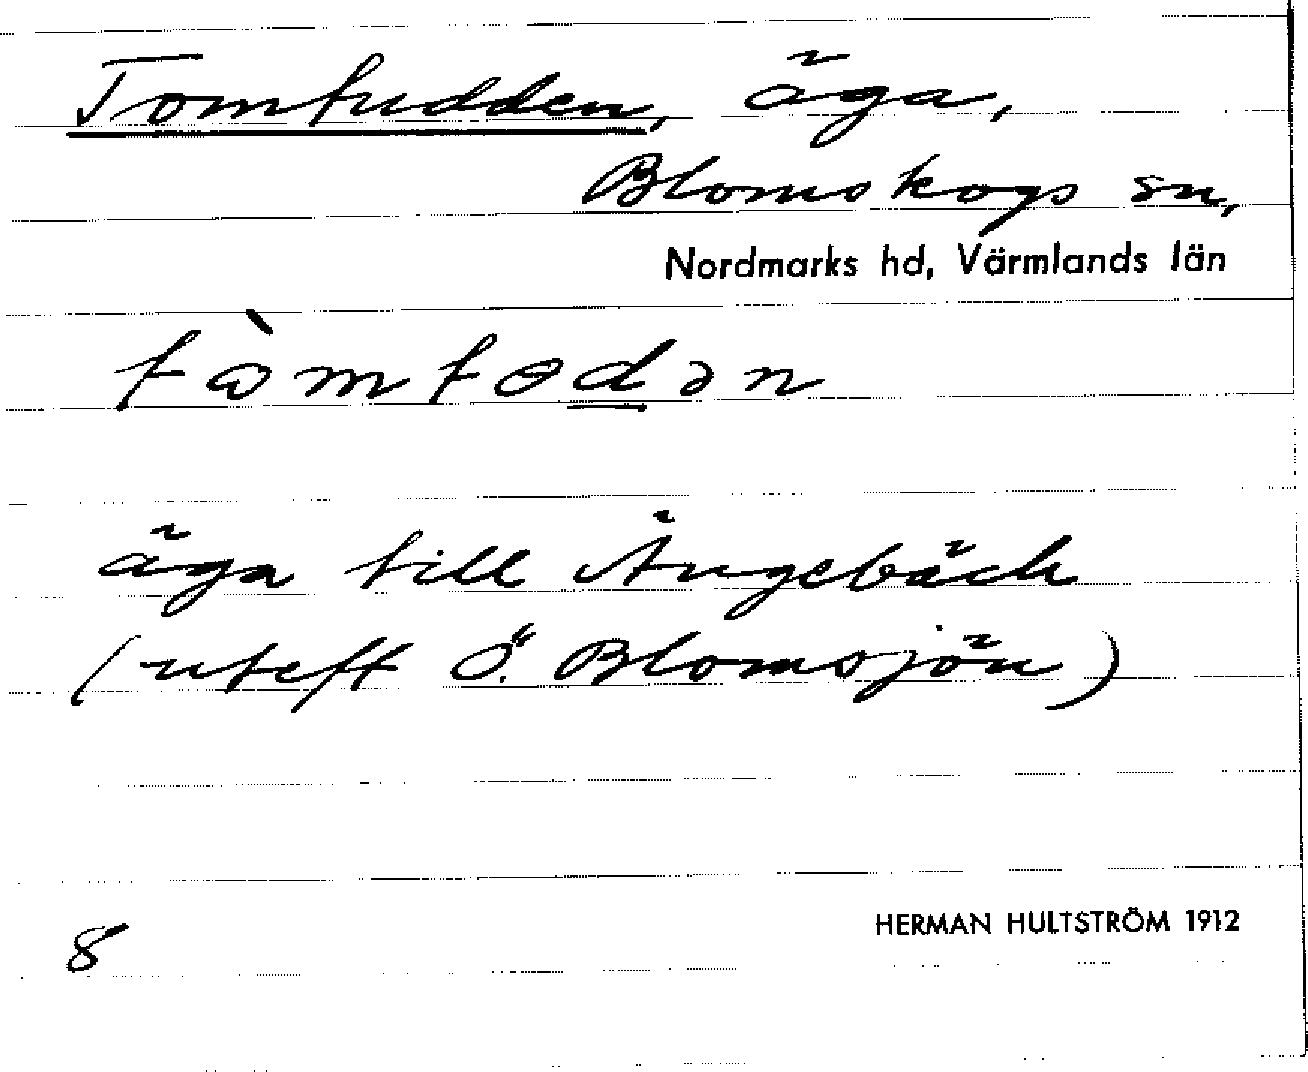 Tomtudden, äga,
Blomskogs sn,
Nordmarks hd, Värmlands län
tɷ̀mtɵdən
äga till Ängebäck
(uteft Ö. Blomsjön)
HERMAN HULTSTRÖM 1912
8